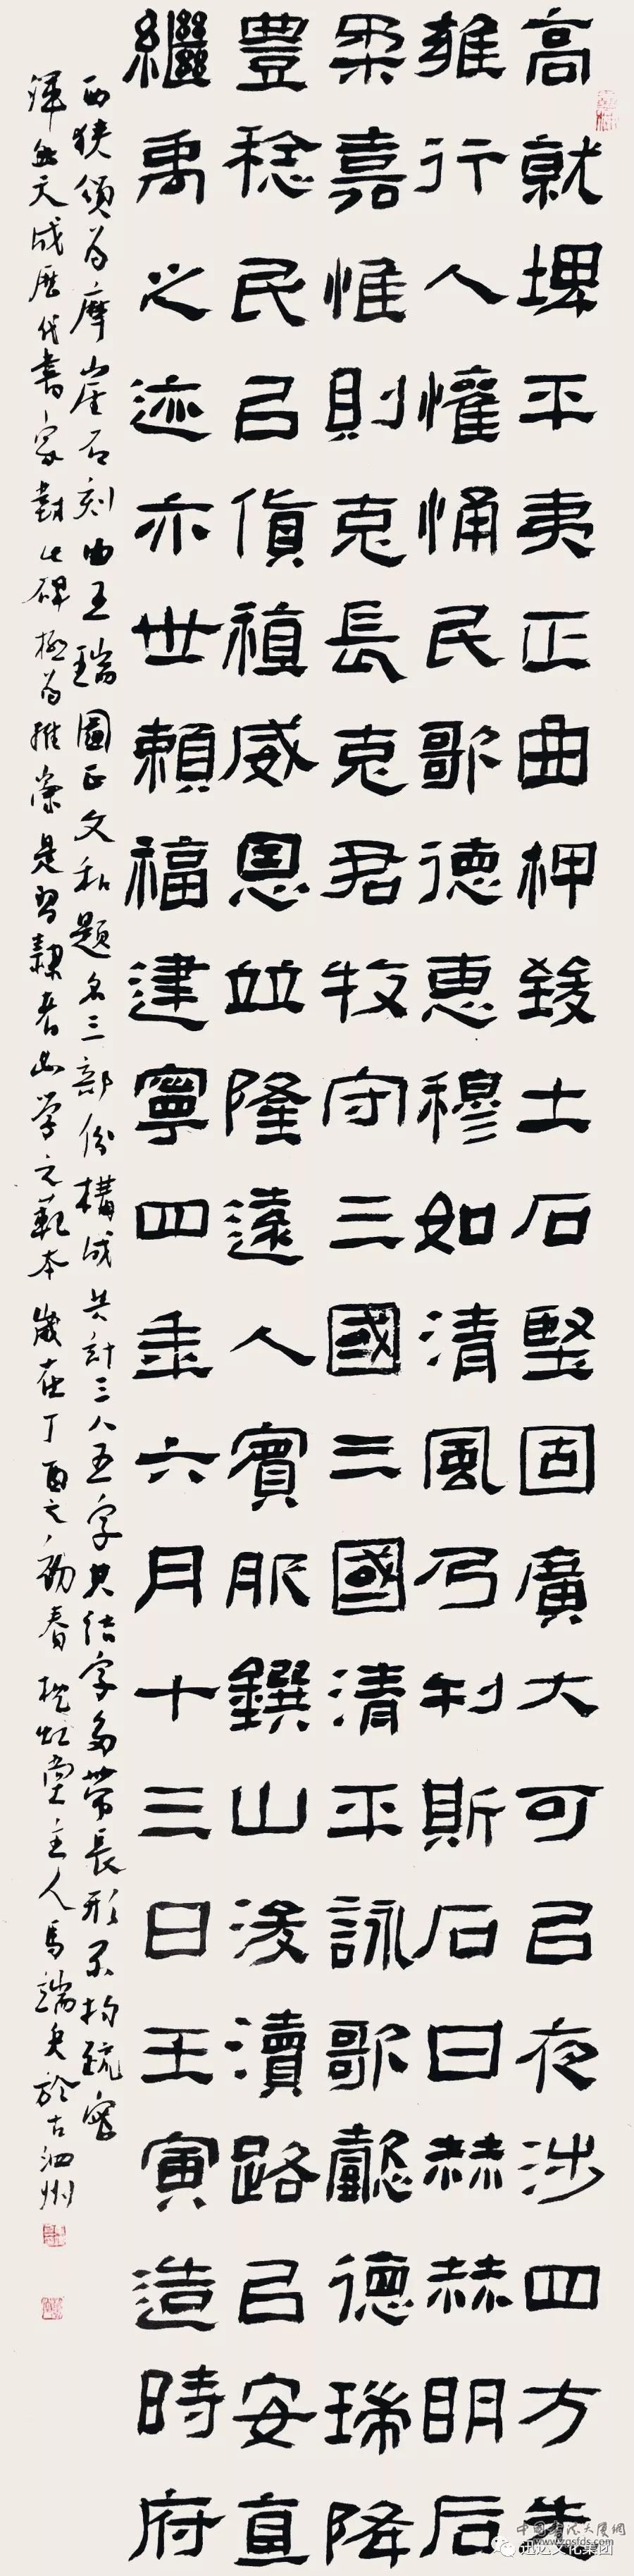 高就埤平夷正曲柙致土石堅固廣大可㠯夜涉四方无
雍行人懽悀民歌德惠穆如清風乃刊斯石曰赫赫明后
柔嘉惟則克長克君牧守三國三國清平詠歌懿德瑞降
豐稔民㠯貨稙威恩並隆遠人賓服鐉山浚瀆路㠯安直
繼禹之迹亦世賴福建寧四年六月十三日壬寅造時府
西狹頌为摩崖石刻由五瑞圖正文和題名三部份構成共計三八五字其结字多帶長形不拘疏密
渾然天成歷代書家對此碑極为推崇是習隸者必学之範本歲在丁酉之初春 虹堂主人馬端於古泗州
中国书法大厦网
www.zgsfds.com
迅达文化集团